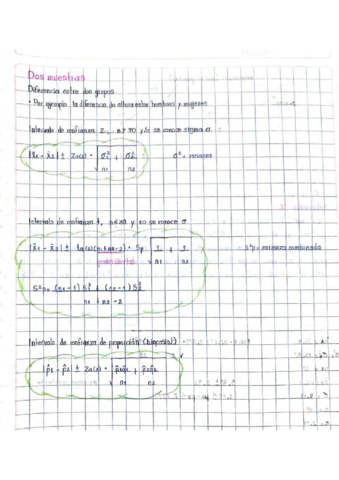 Dos muestras
Diferencia entre dos grupos
• Por ejemplo, la diferencia de altura entre hombres y mujeres
Intervalo de confianza z, n ≥ 30 y/o se conoce sigma σ
|x̄₁ - x̄₂| ± Zα(2) • √(σ₁²/n₁ + σ₂²/n₂) σ² = varianza
Intervalo de confianza t, n<30 y no se conoce σ
|x̄₁ - x̄₂| ± tα(2)(n₁+n₂-2) • Sp √(1/n₁ + 1/n₂) S²p = varianza combinada
grados libertad
S²p = (n₁ - 1) S₁² + (n₂ - 1) S₂²
n₁ + n₂ - 2
Intervalo de confianza de proporción (binomial)
|p̂₁ - p̂₂| ± Zα(2) • √(p̂₁q̂₁/n₁ + p̂₂q̂₂/n₂)